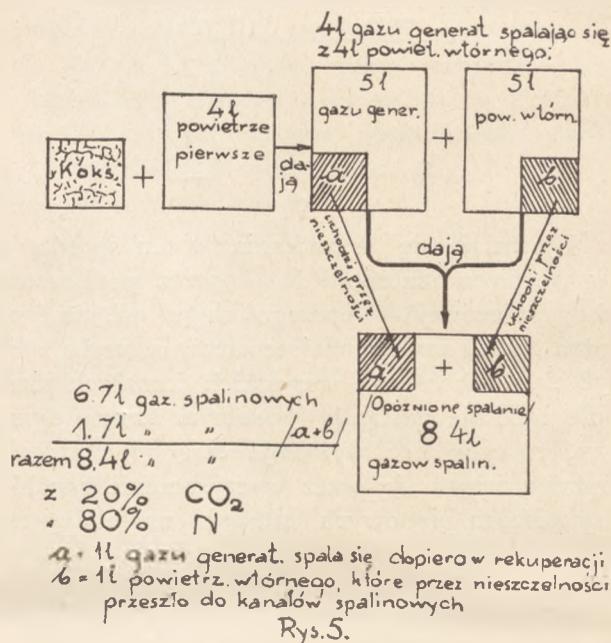 4l gazu generat spalając się
z 4l powiet. wtórnego:
5l
gazu gener.
5l
pow. wtórn.
4l
powietrze
pierwsze
Koks
+
dają
+
a
b
uchodzi przez
nieszczelności
dają
uchodzi przez
nieszczelności
a
+
b
/Opóźnione spalanie/
8 4l
gazow spalin.
6.7l gaz. spalinowych
1.7l " " /a+b/
razem 8,4l " "
z 20% CO₂
" 80% N
a = 1l gazu generat. spala się dopiero w rekuperacji
b = 1l powietrz. wtórnego, które przez nieszczelności
przeszło do kanałów spalinowych
Rys.5.